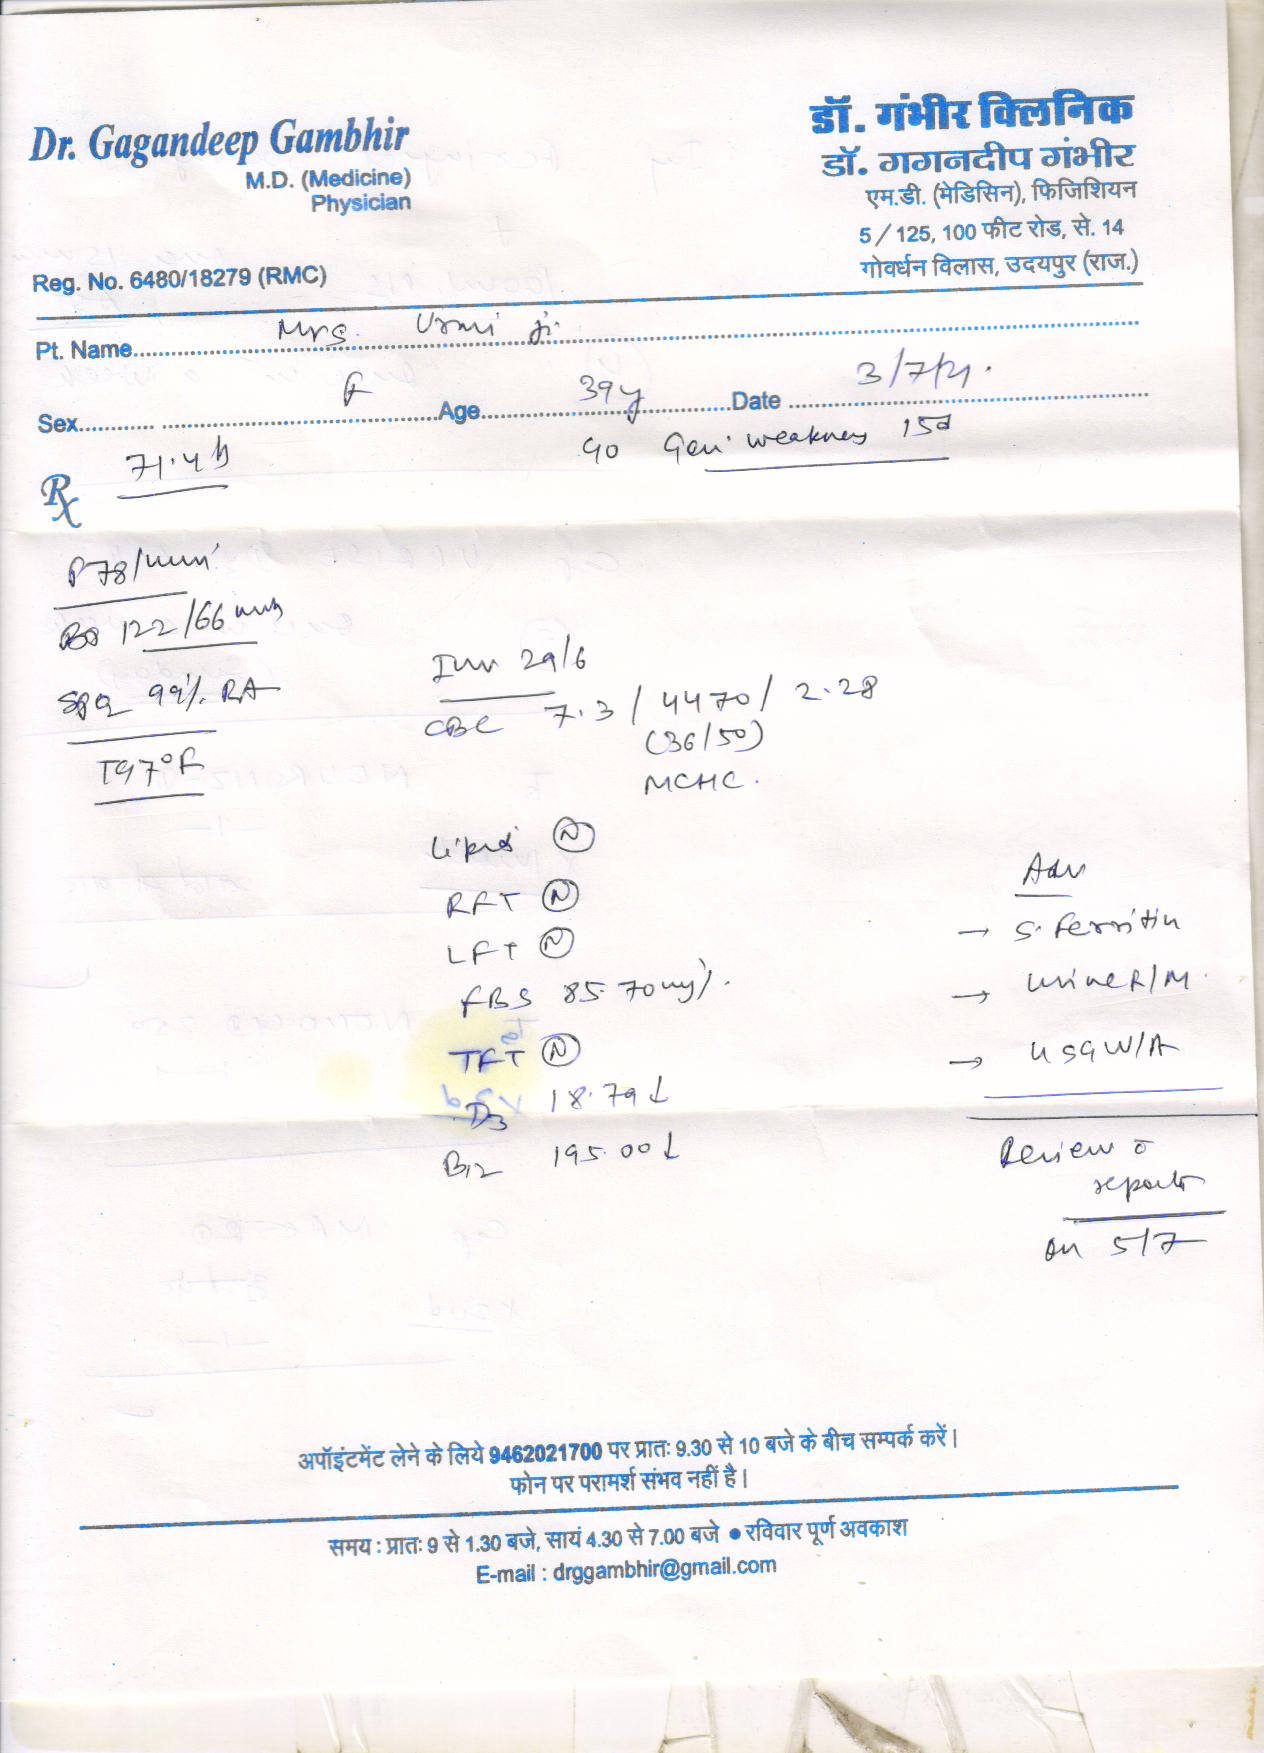 Dr. Gagandeep Gambhir
M.D. (Medicine)
Physician
Reg. No. 6480/18279 (RMC)
डॉ. गंभीर क्लिनिक
डॉ. गगनदीप गंभीर
एम.डी. (मेडिसिन), फिजिशियन
5/125, 100 फीट रोड, से. 14
गोवर्धन विलास, उदयपुर (राज.)
Pt. Name Mrs. Urmi ji
Sex F Age 39y Date 3/7/21.
71.4
c/o Gen. weakness 15d
Rx
P 78/min
BP 122/66
SpO2 99% RA
T 97°F
Inv 29/6
CBC 7.3 / 4470 / 2.28
(36/50)
MCHC.
Lipid (N)
RFT (N)
LFT (N)
FBS 85.70 mg%.
TFT (N)
D3 18.79 ↓
B12 195.00 ↓
Adv
→ S. Ferritin
→ Urine R/M.
→ USG W/A
Review c̄
reports
on 5/7
अपॉइंटमेंट लेने के लिये 9462021700 पर प्रातः 9.30 से 10 बजे के बीच सम्पर्क करें।
फोन पर परामर्श संभव नहीं है।
समय : प्रातः 9 से 1.30 बजे, सायं 4.30 से 7.00 बजे ● रविवार पूर्ण अवकाश
E-mail : drggambhir@gmail.com